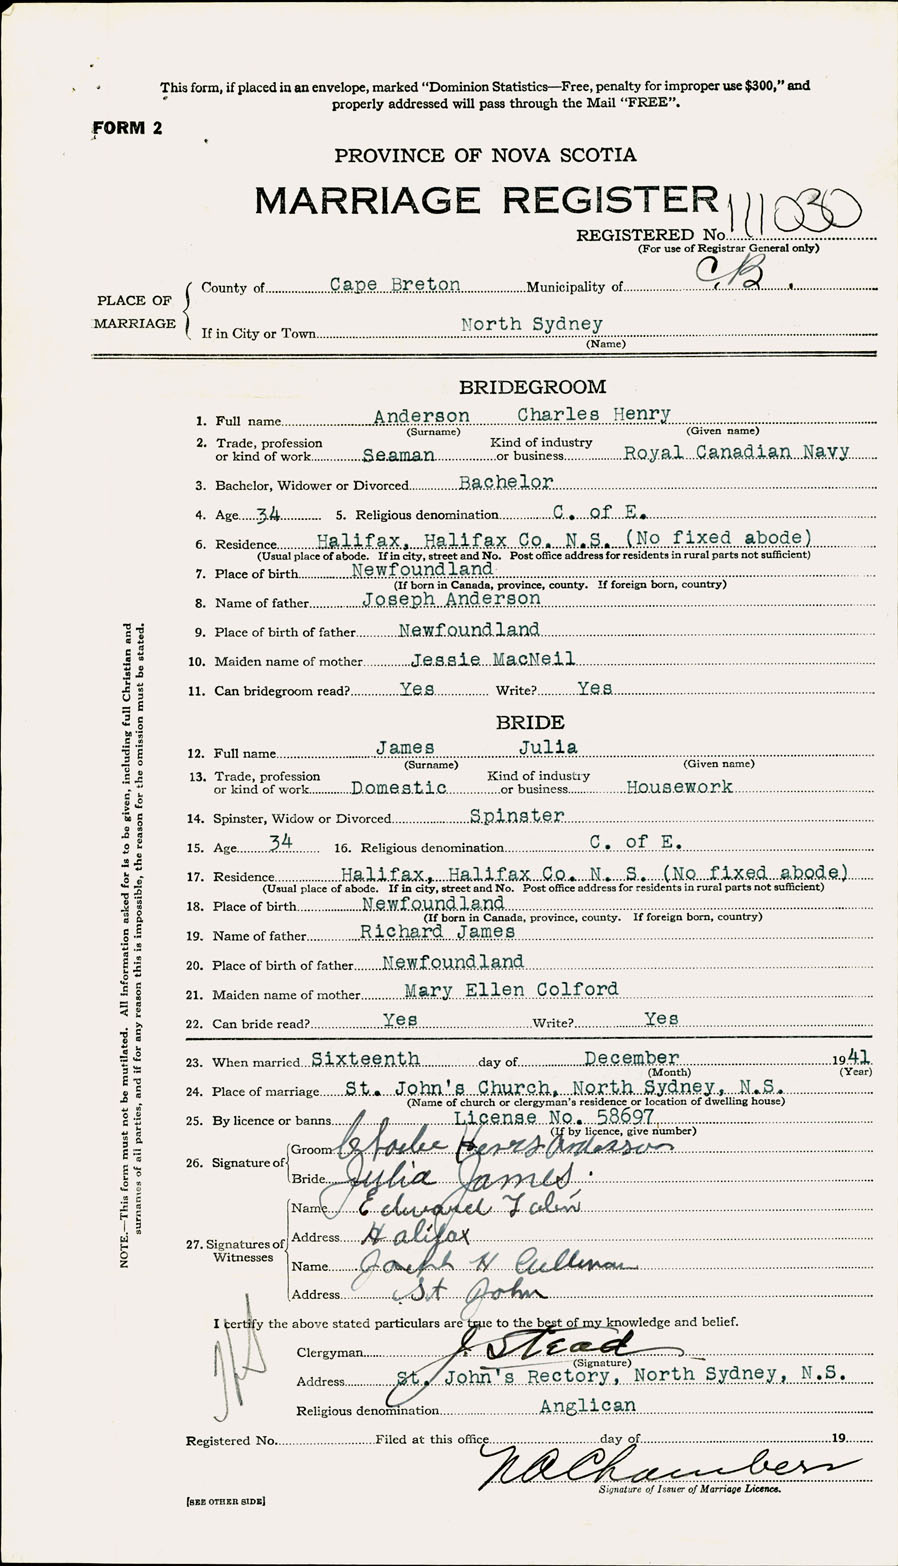 This form, if placed in an envelope, marked “Dominion Statistics—Free, penalty for improper use $300,” and
properly addressed will pass through the Mail “FREE”.
FORM 2
PROVINCE OF NOVA SCOTIA
MARRIAGE REGISTER
REGISTERED No. 111030
(For use of Registrar General only)
PLACE OF MARRIAGE
County of Cape Breton Municipality of C.B.
If in City or Town North Sydney
(Name)
BRIDEGROOM
1. Full name Anderson Charles Henry
(Surname) (Given name)
2. Trade, profession or kind of work Seaman Kind of industry or business Royal Canadian Navy
3. Bachelor, Widower or Divorced Bachelor
4. Age 34 5. Religious denomination C. of E.
6. Residence Halifax, Halifax Co. N.S. (No fixed abode)
(Usual place of abode. If in city, street and No. Post office address for residents in rural parts not sufficient)
7. Place of birth Newfoundland
(If born in Canada, province, county. If foreign born, country)
8. Name of father Joseph Anderson
9. Place of birth of father Newfoundland
10. Maiden name of mother Jessie MacNeil
11. Can bridegroom read? Yes Write? Yes
BRIDE
12. Full name James Julia
(Surname) (Given name)
13. Trade, profession or kind of work Domestic Kind of industry or business Housework
14. Spinster, Widow or Divorced Spinster
15. Age 34 16. Religious denomination C. of E.
17. Residence Halifax, Halifax Co. N. S. (No fixed abode)
(Usual place of abode. If in city, street and No. Post office address for residents in rural parts not sufficient)
18. Place of birth Newfoundland
(If born in Canada, province, county. If foreign born, country)
19. Name of father Richard James
20. Place of birth of father Newfoundland
21. Maiden name of mother Mary Ellen Colford
22. Can bride read? Yes Write? Yes
23. When married Sixteenth day of December 1941
(Month) (Year)
24. Place of marriage St. John's Church, North Sydney, N.S.
(Name of church or clergyman's residence or location of dwelling house)
25. By licence or banns License No. 58697
(If by licence, give number)
26. Signature of
Groom Henry Anderson
Bride Julia James.
27. Signatures of Witnesses
Name Edward
Address Halifax
Name Joseph H
Address St John
I certify the above stated particulars are true to the best of my knowledge and belief.
Clergyman J. Stead
(Signature)
Address St. John's Rectory, North Sydney, N.S.
Religious denomination Anglican
Registered No. Filed at this office day of 19
Chambers
Signature of Issuer of Marriage Licence.
[SEE OTHER SIDE]
NOTE.—This form must not be mutilated. All information asked for is to be given, including full Christian and
surnames of all parties, and if for any reason this is impossible, the reason for the omission must be stated.